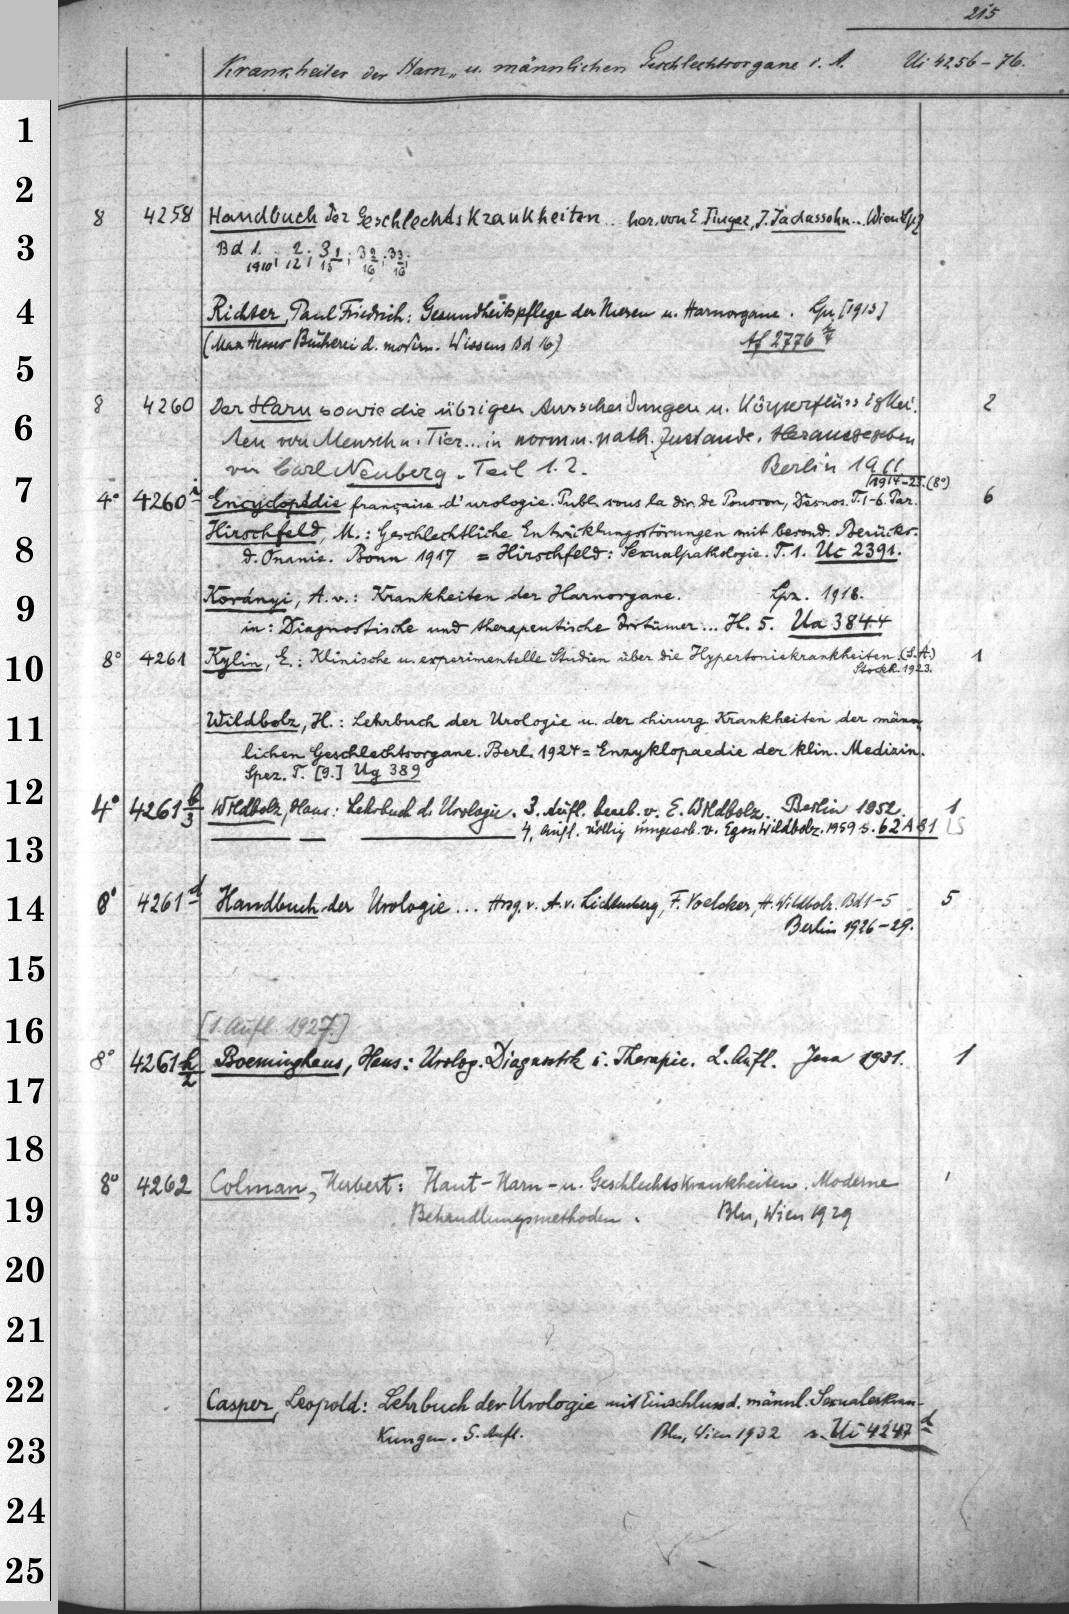 215
Krankheiten der Harn- u. männlichen Geschlechtsorgane i. A. Ui 4256-76.
1
2
8 4258 Handbuch der Geschlechtskrankheiten.. her. von E. Finger, J. Jadassohn.. Wien Lpz
3
Bd 1. 1910; 2 12; 3 1 15; 3 2 16; 3 3 16;
4
Richter, Paul Friedrich: Gesundheitspflege der Nieren u. Harnorgane. Lpz. [1913]
(Max Hesses Bücherei d. modern. Wissens Bd 16) Af 2776
5
8 4260 Der Harn sowie die übrigen Ausscheidungen u. Körperflüssigkei- 2
6
ten von Mensch u. Tier... in norm. u. path. Zustande. Herausgegeben
von Carl Neuberg. Teil 1.2. Berlin 1911
1914-23. (8°)
7
4° 4260 i Encyclopédie française d'urologie. Publ. sous la dir. de Pousson, Desnos. T. 1-6. Par. 6
Hirschfeld, M.: Geschlechtliche Entwicklungsstörungen mit besond. Berücks.
8
d. Onanie. Bonn 1917 = Hirschfeld: Sexualpathologie. T. 1. Uc 2391.
9
Korányi, A. v.: Krankheiten der Harnorgane. Lpz. 1918.
in: Diagnostische und therapeutische Irrtümer... H. 5. Ua 3844
10
8° 4261 Kylin, E.: Klinische u. experimentelle Studien über die Hypertoniekrankheiten. (S.A.) 1
Stockh. 1923.
11
Wildbolz, H.: Lehrbuch der Urologie u. der chirurg. Krankheiten der männ-
lichen Geschlechtsorgane. Berl. 1924 = Enzyklopaedie der klin. Medizin.
Spez. T. [9.] Ug 389
12
4° 4261 b/3 Wildbolz, Hans: Lehrbuch d. Urologie. 3. Aufl. bearb. v. E. Wildbolz. Berlin 1952. 1
4. Aufl. völlig umgearb. v. Egon Wildbolz. 1959 s. 62 A 81 LS
13
14
8° 4261 d Handbuch der Urologie... Hrsg. v. A. v. Lichtenberg, F. Voelcker, H. Wildbolz. Bd 1-5 5
Berlin 1926-29.
15
16
[1. Aufl. 1927.]
8° 4261 h/2 Boeminghaus, Hans: Urolog. Diagnostik u. Therapie. 2. Aufl. Jena 1931. 1
17
18
8° 4262 Colman, Herbert: Haut- Harn- u. Geschlechtskrankheiten. Moderne 1
19
Behandlungsmethoden. Bln, Wien 1929
20
21
22
Casper, Leopold: Lehrbuch der Urologie mit Einschluss d. männl. Sexualerkran-
23
kungen. 5. Aufl. Bln, Wien 1932 s. Ui 4247 d
24
25